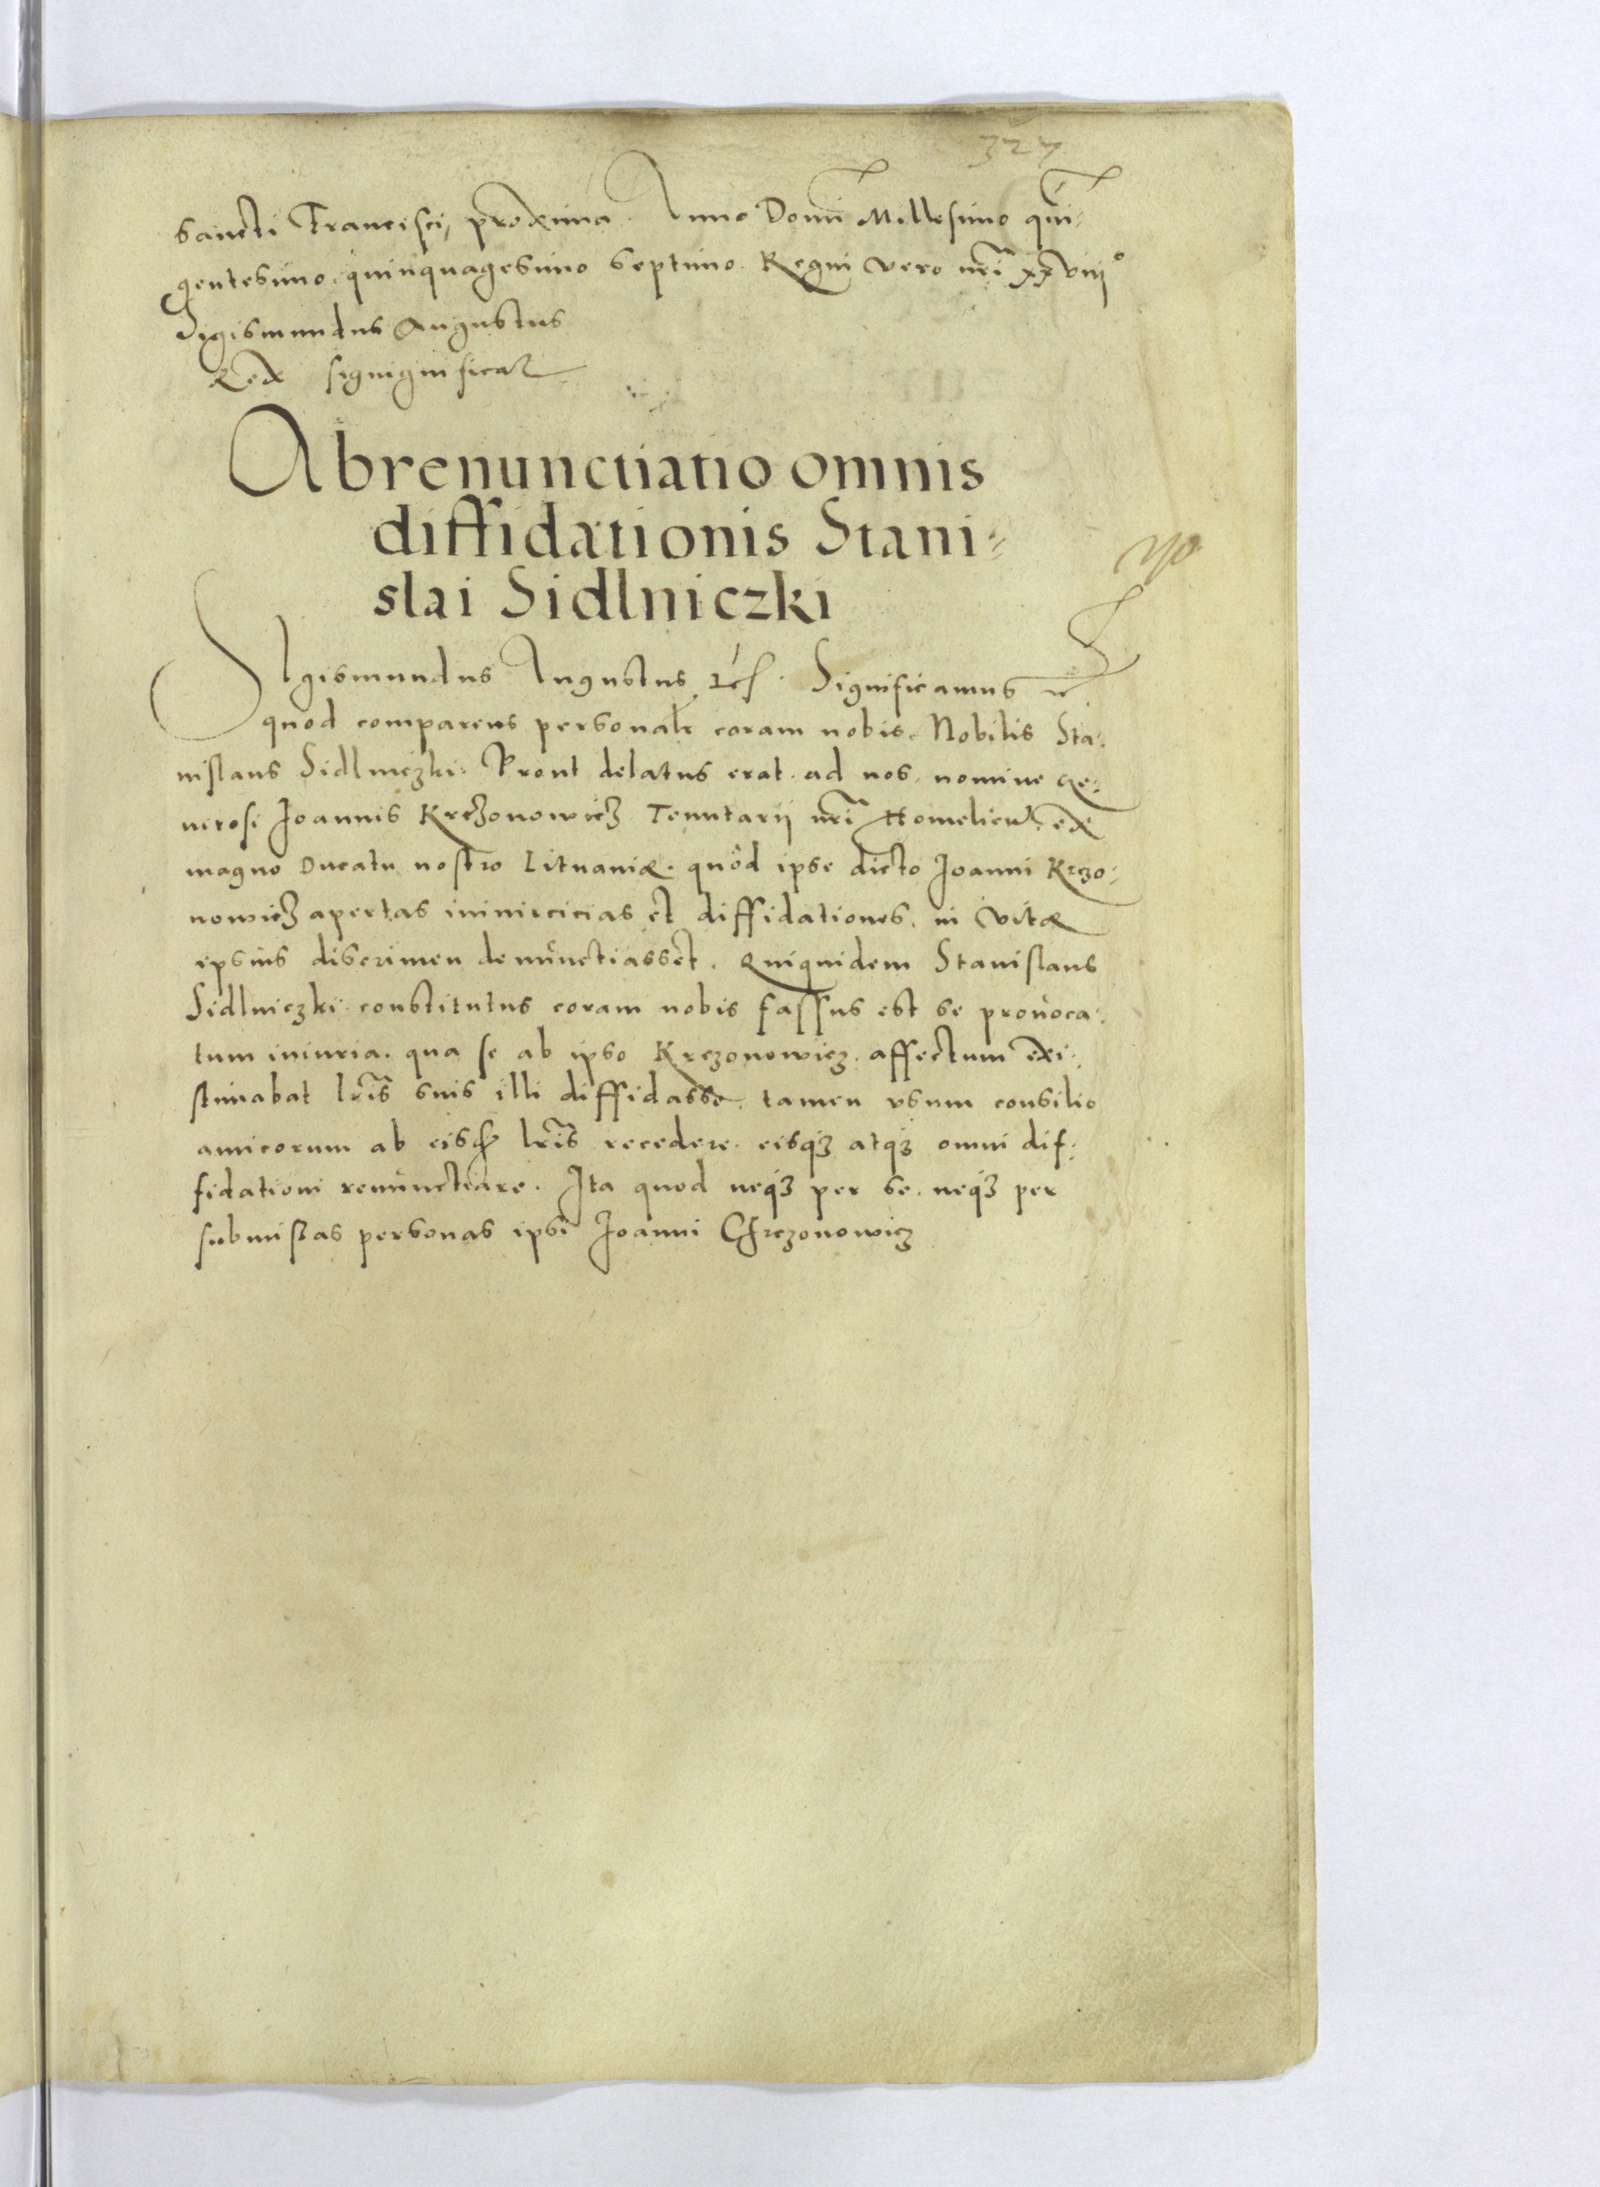 327
Sancti Francisci, proxima. Anno Domī Millesimo qui-
gentesimo quinquagesimo septimo. Regni vero nr̄i xxviij°
Sigismundus Augustus
Rex signignificat
Abrenunctiatio omnis
diffidationis Stani-
slai Sidlniczki
Sigismundus Augustus Significamus
quod comparens personalr coram nobis. Nobilis Sta-
nislaus Sidlniczki. Prout delatus erat. ad nos. nomine Ge-
nerosi Joannis Krczonowicz Tenutarii nr̄i Homelien̄ ex
magno Ducatu nostro Lituaniæ. quod ipse dicto Joanni Krczo-
nowicz apertas inimicicias et diffidationes. in vitæ
ipsius discrimen denunctiasset. Quiquidem Stanislaus
Sidlniczki constitutus coram nobis fassus est se prouoca-
tum iniuria. qua se ab ipso Krczonowicz. affectum exi-
stimabat lr̄is suis illi diffidasse. tamen vsum consilio
amicorum ab eisdē lr̄is recedere. eisq₃ atq₃ omni dif-
fidationi renunctiare. Ita quod neq₃ per se. neq₃ per
submissas personas ipsi Joanni Chrczonowicz